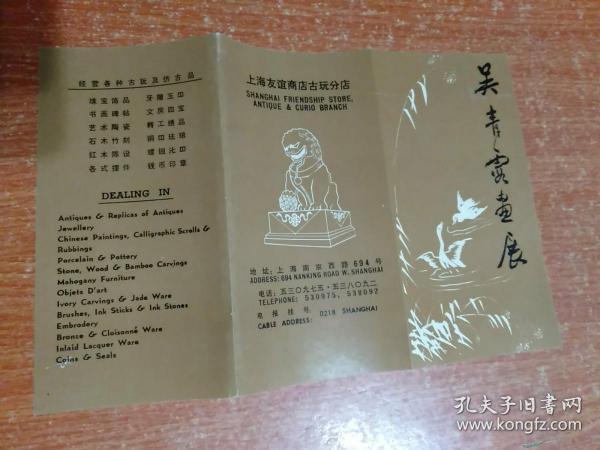 经营各种古玩及仿古品
珠宝饰品 牙雕玉器
书画碑帖 文房四宝
艺术陶瓷
石木竹刻
红木陈设
各式摆件 钱币印章
DEALING IN
Antiques & Replicas of Antiques
Jewellery
Chinese Paintings, Calligraphic Scrolls &
Rubbings
Porcelain & Pottery
Stone, Wood & Bamboo Carvings
Mahogany Furniture
Objets D'art
Ivory Carvings & Jade Ware
Brushes, Ink Sticks & Ink Stones
Embrodery
Bronze & Cloisonné Ware
Inlaid Lacquer Ware
Coins & Seals
上海友谊商店古玩分店
SHANGHAI FRIENDSHIP STORE,
ANTIQUE & CURIO BRANCH
地址:上海南京西路694号
ADDRESS: 694 NANKING ROAD W. SHANGHAI
电话:五三〇九七五·五三八〇九二
TELEPHONE: 530975, 538092
电报挂号:
CABLE ADDRESS: 0218 SHANGHAI
吴青霞画展
孔夫子旧书网
www.kongfz.com